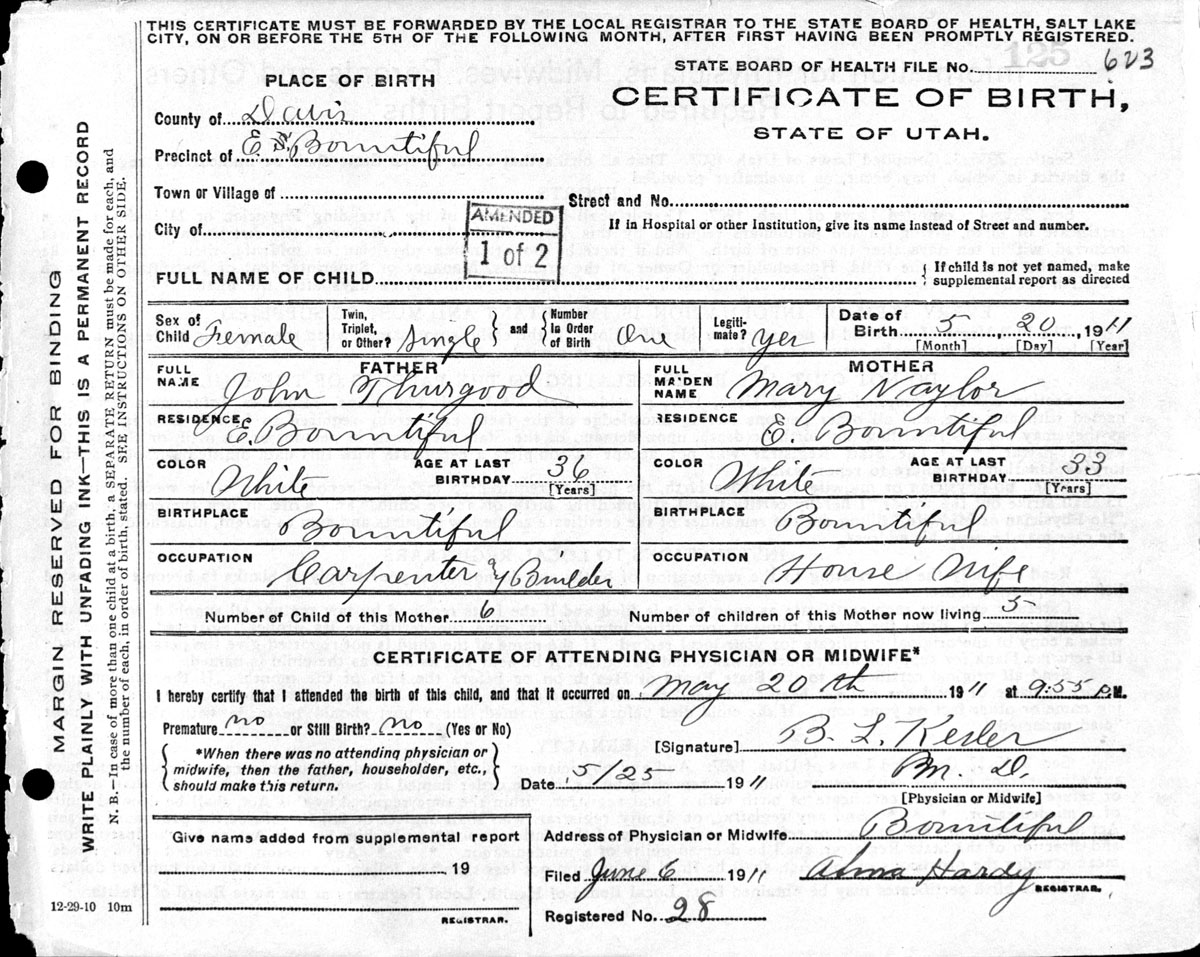 THIS CERTIFICATE MUST BE FORWARDED BY THE LOCAL REGISTRAR TO THE STATE BOARD OF HEALTH, SALT LAKE
CITY, ON OR BEFORE THE 5TH OF THE FOLLOWING MONTH, AFTER FIRST HAVING BEEN PROMPTLY REGISTERED.
MARGIN RESERVED FOR BINDING
WRITE PLAINLY WITH UNFADING INK—THIS IS A PERMANENT RECORD
N. B.—In case of more than one child at a birth, a SEPARATE RETURN must be made for each, and
the number of each, in order of birth, stated. SEE INSTRUCTIONS ON OTHER SIDE.
PLACE OF BIRTH
County of Davis
Precinct of E. Bountiful
Town or Village of
City of
STATE BOARD OF HEALTH FILE No. 623
125
CERTIFICATE OF BIRTH,
STATE OF UTAH.
Street and No.
If in Hospital or other institution, give its name instead of Street and number.
AMENDED
1 of 2
FULL NAME OF CHILD
If child is not yet named, make
supplemental report as directed
Sex of Child Female
Twin, Triplet, or Other? Single
and Number In Order of Birth One
Legitimate? Yes
Date of Birth 5 20 1911
[Month] [Day] [Year]
FATHER
FULL NAME John Thurgood
RESIDENCE E. Bountiful
COLOR White AGE AT LAST BIRTHDAY 36 [Years]
BIRTHPLACE Bountiful
OCCUPATION Carpenter & Builder
MOTHER
FULL MAIDEN NAME Mary Naylor
RESIDENCE E. Bountiful
COLOR White AGE AT LAST BIRTHDAY 33 [Years]
BIRTHPLACE Bountiful
OCCUPATION House Wife
Number of Child of this Mother 6 Number of children of this Mother now living 5
CERTIFICATE OF ATTENDING PHYSICIAN OR MIDWIFE*
I hereby certify that I attended the birth of this child, and that it occurred on May 20th 1911 at 9:55 P.M.
Premature no or Still Birth? no (Yes or No)
*When there was no attending physician or
midwife, then the father, householder, etc.,
should make this return.
[Signature] B. L. Kesler
M. D.
Date 5/25 1911 [Physician or Midwife]
Give name added from supplemental report
19
REGISTRAR.
Address of Physician or Midwife Bountiful
Filed June 6 1911 Alma Hardy
REGISTRAR.
Registered No. 28
12-29-10 10m